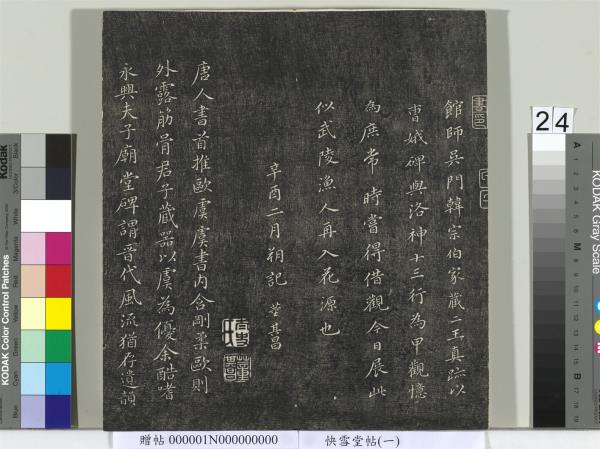 館師吳門韓宗伯家藏二王真跡以
曹娥碑與洛神十三行為甲觀憶
為庶常時嘗得借觀今日展此
似武陵漁人再入花源也
辛酉二月朔記 董其昌
唐人書首推歐虞虞書內含剛柔歐則
外露筋骨君子藏器以虞為優余酷嗜
永興夫子廟堂碑謂晉代風流猶存遺韻
24
KODAK Color Control Patches
Kodak
KODAK Gray Scale
A 1 2 3 4 5 6 M 8 9 10 11 12 13 14 15 B 17 18 19
贈帖 000001N000000000 快雪堂帖(一)